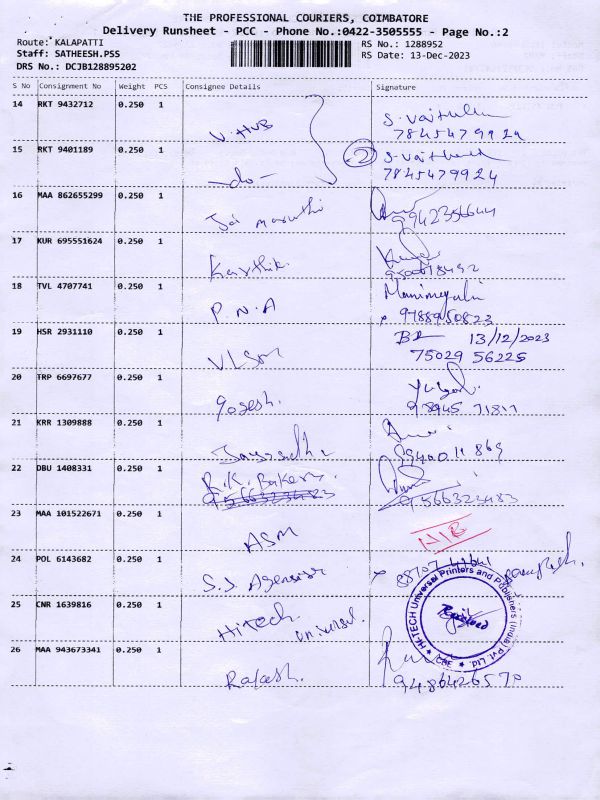 THE PROFESSIONAL COURIERS, COIMBATORE
Delivery Runsheet - PCC - Phone No.:0422-3505555 - Page No.:2
Route: KALAPATTI
Staff: SATHEESH.PSS
DRS No.: DCJB128895202
RS No.: 1288952
RS Date: 13-Dec-2023
S No Consignment No Weight PCS Consignee Details Signature
14 RKT 9432712 0.250 1 V. HUB
7845479924
15 RKT 9401189 0.250 1 -do- 2
7845479924
16 MAA 862655299 0.250 1 Jai maruthi
9942356644
17 KUR 695551624 0.250 1 Karthik.
18 TVL 4707741 0.250 1 P.N.A Manimegalai
9788950823
19 HSR 2931110 0.250 1 VLSM 13/12/2023
75029 56225
20 TRP 6697677 0.250 1 Yogesh.
98945 71817
21 KRR 1309888 0.250 1
22 DBU 1408331 0.250 1 R.K. Bakers
9566323483
9566323483
23 MAA 101522671 0.250 1 ASM NIB
24 POL 6143682 0.250 1 S.S Agencies
25 CNR 1639816 0.250 1 Hitech universal.
HI-TECH Universal Printers and Publishers (India) Pvt. Ltd. ★ CBE ★
Received
26 MAA 943673341 0.250 1 Rajash.
9486426570